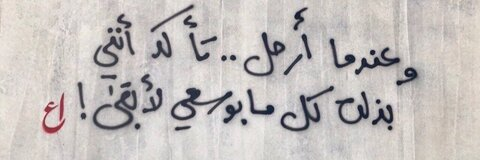 وعندما أرحل .. تأكد أنني
بذلت كل ما بوسعي لأبقى ! اع